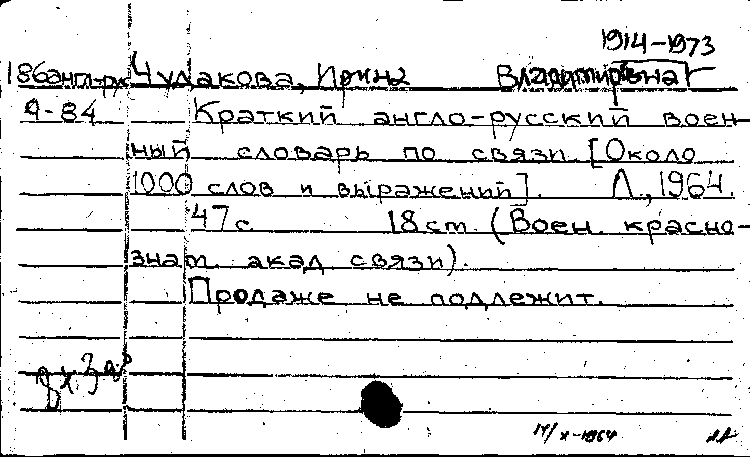 1914-1973
186англ-рус Чудакова, Ирина Владимировна
Ч-84 Краткий англо-русский воен-
ный словарь по связи [Около
1000 слов и выражений]. Л., 1964.
47с. 18 см. (Воен. красно-
знам. акад связи).
Продаже не подлежит.
14/X-1964